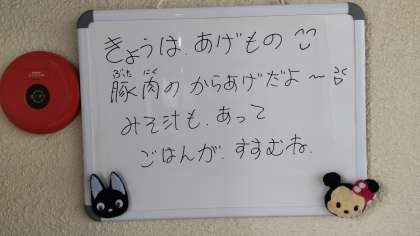 きょうは、あげもの
豚肉のからあげだよ〜
みそ汁も、あって
ごはんが、すすむね。